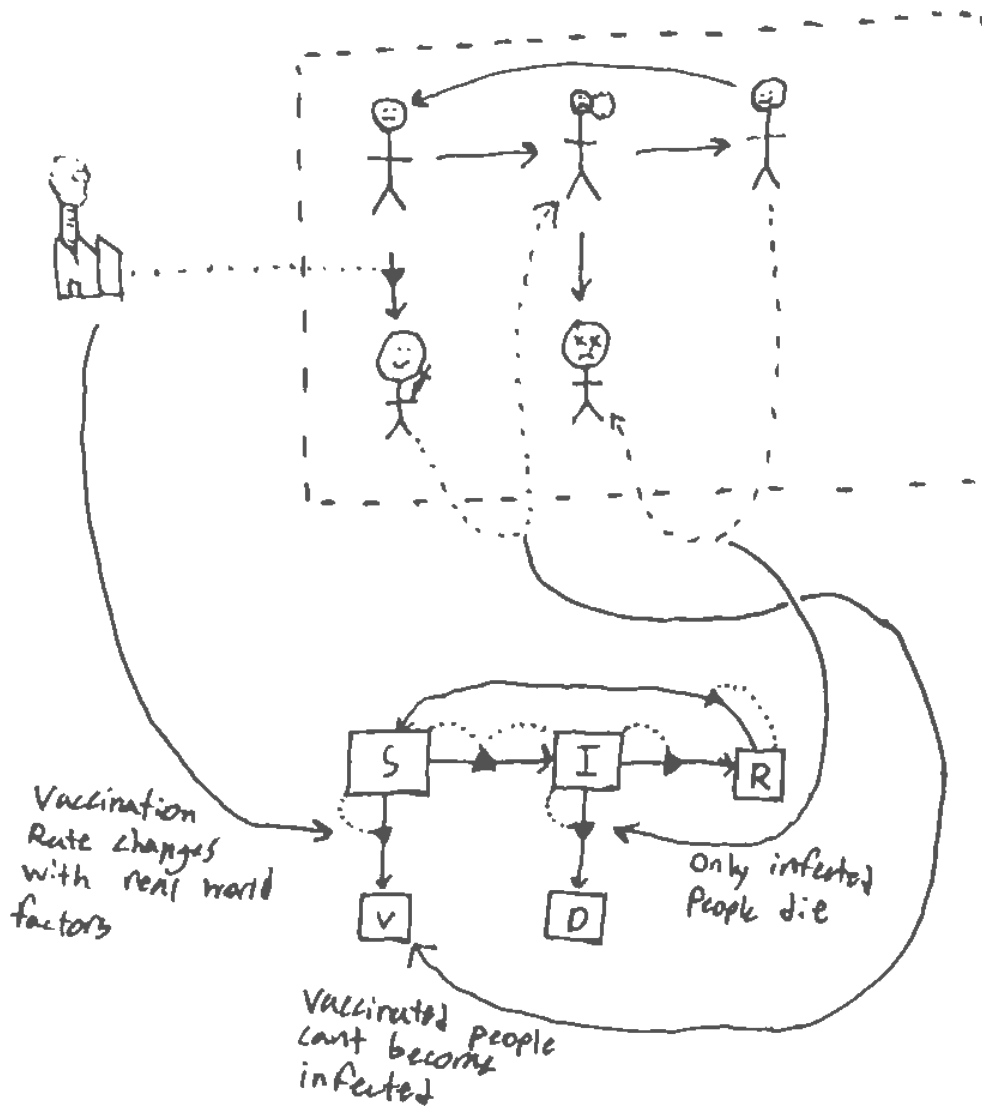 S
I
R
Vaccination
Rate changes
with real world
factors
Only infected
People die
V
D
Vaccinated people
cant become
infected